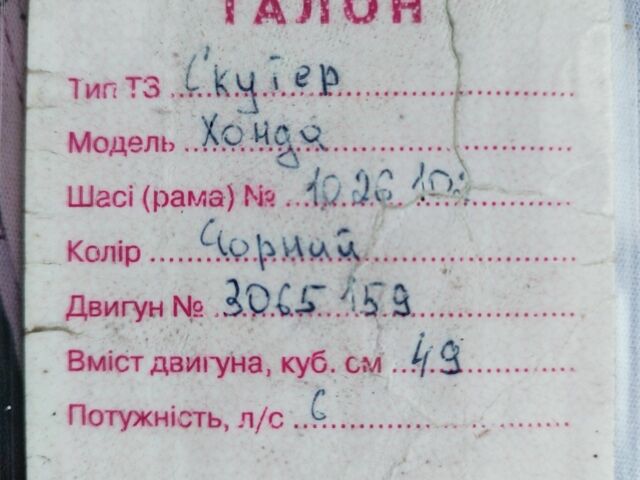 ТАЛОН
Тип ТЗ Скутер
Модель Хонда
Шасі (рама) №
Колір Чорний
Двигун № 3065159
Вміст двигуна, куб. см 49
Потужність, л/с 6